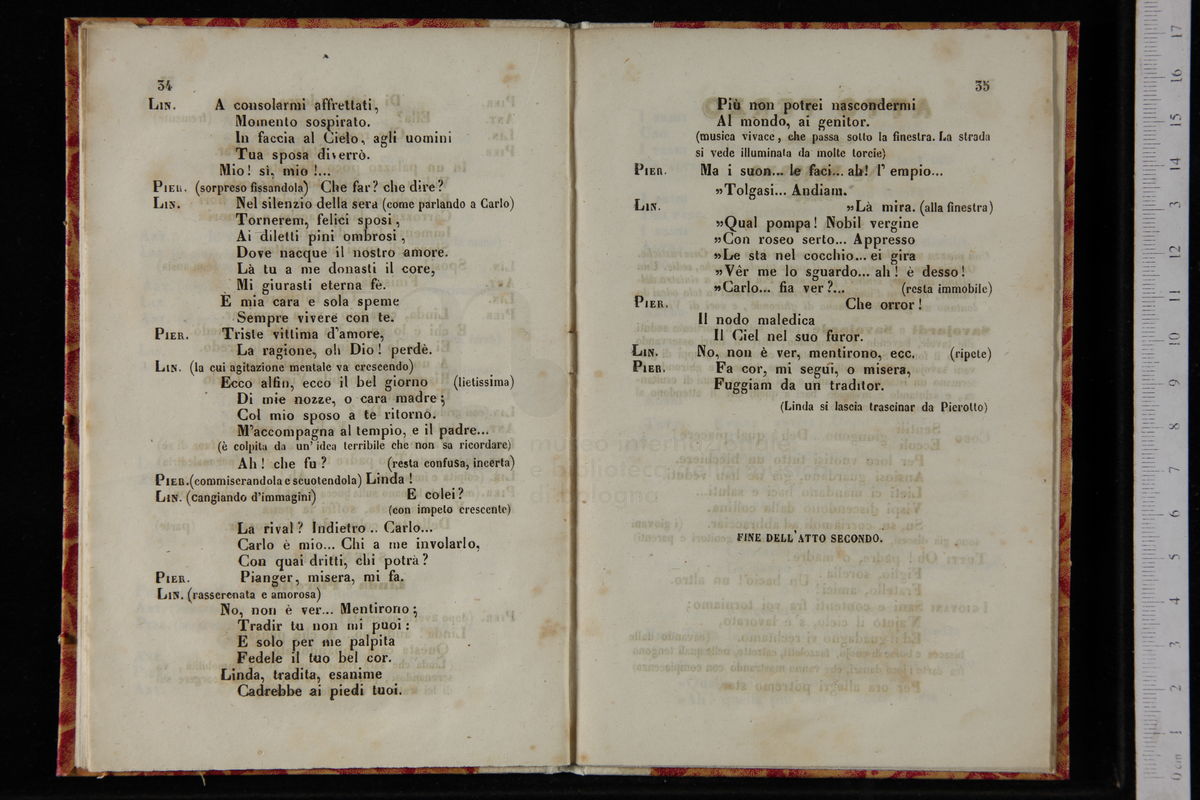 34
LIN. A consolarmi affrettati,
Momento sospirato.
In faccia al Cielo, agli uomini
Tua sposa diverrò.
Mio! sì, mio!...
PIER. (sorpreso fissandola) Che far? che dire?
LIN. Nel silenzio della sera (come parlando a Carlo)
Tornerem, felici sposi,
Ai diletti pini ombrosi,
Dove nacque il nostro amore.
Là tu a me donasti il core,
Mi giurasti eterna fè.
È mia cara e sola speme
Sempre vivere con te.
PIER. Triste vittima d'amore,
La ragione, oh Dio! perdè.
LIN. (la cui agitazione mentale va crescendo)
Ecco alfin, ecco il bel giorno (lietissima)
Di mie nozze, o cara madre;
Col mio sposo a te ritorno.
M'accompagna al tempio, e il padre...
(è colpita da un' idea terribile che non sa ricordare)
Ah! che fu? (resta confusa, incerta)
PIER. (commiserandola e scuotendola) Linda!
LIN. (cangiando d'immagini) E colei?
(con impeto crescente)
La rival? Indietro.. Carlo...
Carlo è mio... Chi a me involarlo,
Con quai dritti, chi potrà?
PIER. Pianger, misera, mi fa.
LIN. (rasserenata e amorosa)
No, non è ver... Mentirono;
Tradir tu non mi puoi:
E solo per me palpita
Fedele il tuo bel cor.
Linda, tradita, esanime
Cadrebbe ai piedi tuoi.
35
Più non potrei nascondermi
Al mondo, ai genitor.
(musica vivace, che passa sotto la finestra. La strada
si vede illuminata da molte torcie)
PIER. Ma i suon... le faci... ah! l' empio...
»Tolgasi... Andiam.
LIN. »Là mira. (alla finestra)
»Qual pompa! Nobil vergine
»Con roseo serto... Appresso
»Le sta nel cocchio... ei gira
»Vêr me lo sguardo... ah! è desso!
»Carlo... fia ver?... (resta immobile)
PIER. Che orror!
Il nodo maledica
Il Ciel nel suo furor.
LIN. No, non è ver, mentirono, ecc. (ripete)
PIER. Fa cor, mi segui, o misera,
Fuggiam da un traditor.
(Linda si lascia trascinar da Pierotto)
FINE DELL'ATTO SECONDO.
museo internazionale
e biblioteca della musica
di bologna
0 cm 1 2 3 4 5 6 7 8 9 10 11 12 13 14 15 16 17